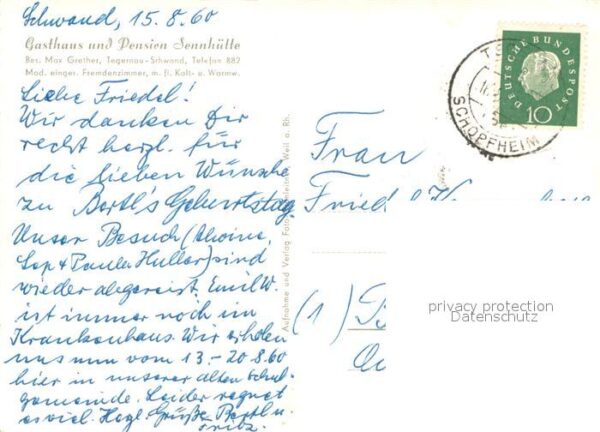 Schwand, 15.8.60
Gasthaus und Pension Sennhütte
Bes. Max Grether, Tegernau-Schwand, Telefon 882
Mod. einger. Fremdenzimmer, m. fl. Kalt- u. Warmw.
Liebe Friedel!
Wir danken Dir
recht herzl. für
die lieben Wünsche
zu Bertl's Geburtstag.
Unser Besuch (Aloina,
Sep + Paula Huller) sind
wieder abgereist. Emil W.
ist immer noch im
Krankenhaus. Wir erholen
uns nun vom 13.-20.8.60
hier in unserer alten Schul-
gemeinde. Leider regnet
es viel. Herzl. Grüße Bertl u.
Aufnahme und Verlag Weil a. Rh.
DEUTSCHE BUNDESPOST
10
SCHOPFHEIM
Frau
Friedel
(1)
privacy protection
Datenschutz